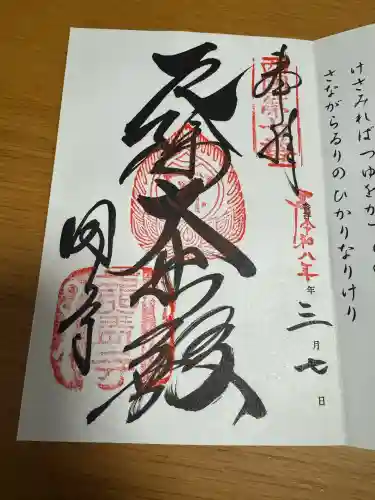 けさみれば つゆをか
さながらるりの ひかりなりけり
奉拝
令和八年 年 三月七日
厄除大悲殿
岡寺